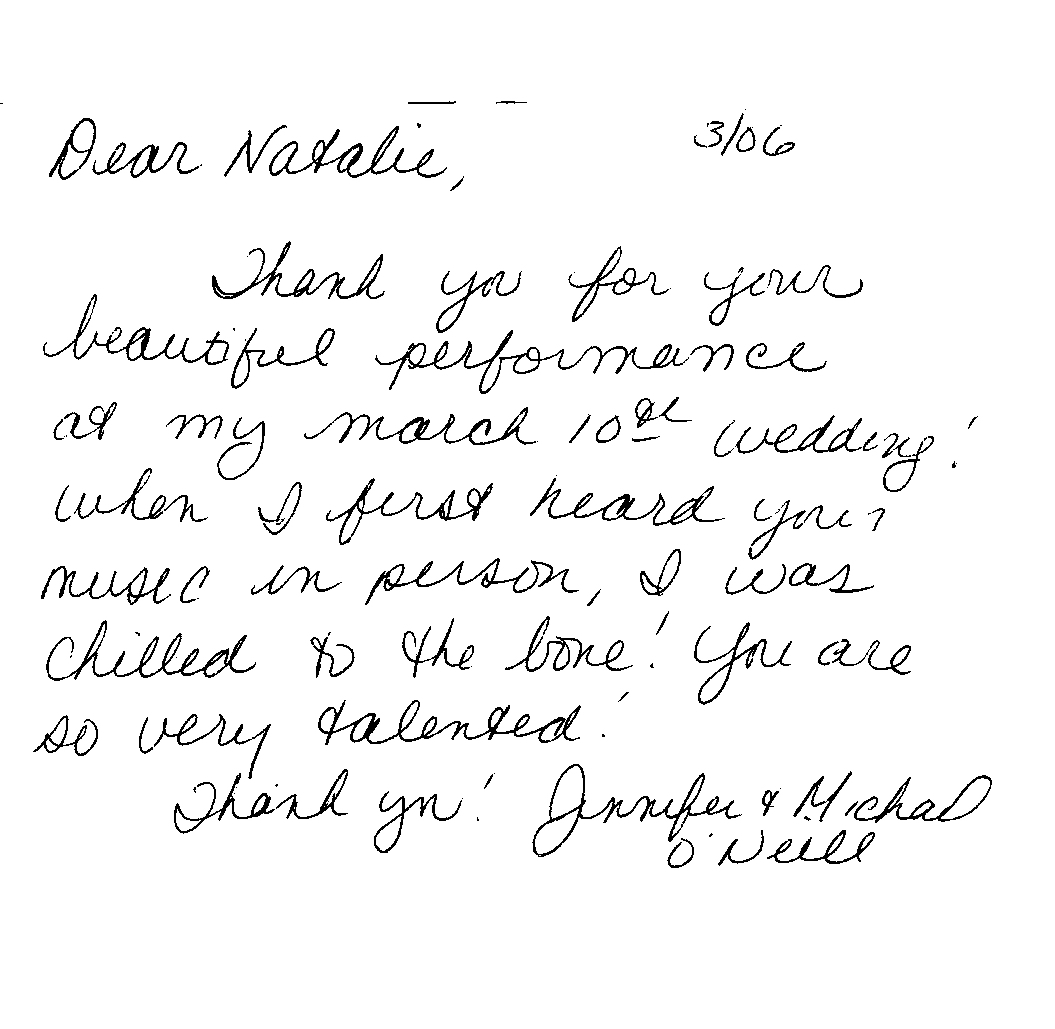 Dear Natalie, 3/06
Thank you for your
beautiful performance
at my march 10th wedding!
When I first heard your
music in person, I was
chilled to the bone! You are
so very talented!
Thank you! Jennifer & Michael
O'Neill